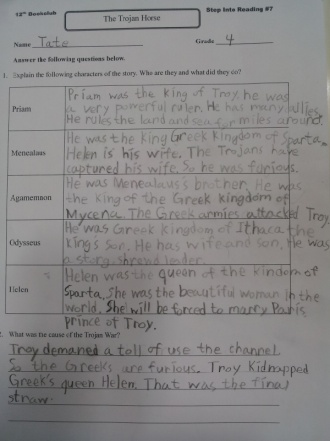 12th Bookclub
Step Into Reading #7
The Trojan Horse
Name Tate
Grade 4
Answer the following questions below.
1. Explain the following characters of the story. Who are they and what did they do?
Priam
Priam was the King of Troy he was
a very powerful ruler. He has many allies
He rules the land and sea for miles around.
Menealaus
He was the King Greek Kingdom of Sparta.
Helen is his wife. The Trojans have
captured his wife. So he was furious.
Agamemnon
He was Menealaus's brother. He was
the King of the Greek Kingdom of
Mycena. The Greek armies attacked Troy.
Odysseus
He was Greek Kingdom of Ithaca the
King's Son. He has wife and son. He was
a story shrewd leader.
Helen
Helen was the queen of the kindom of
Sparta. She was the beautiful woman in the
world. She will be forced to marry Paris
prince of Troy.
2. What was the cause of the Trojan War?
Troy demaned a toll of use the channel.
So the Greeks are furious. Troy Kidnapped
Greek's queen Helen. That was the final
straw.